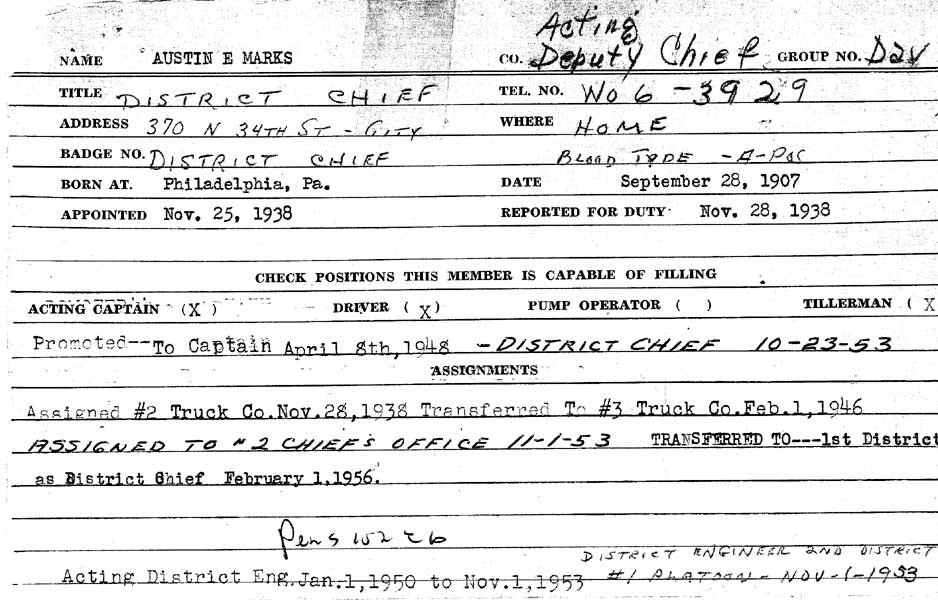 Acting
NAME AUSTIN E MARKS CO. Deputy Chief GROUP NO. Day
TITLE DISTRICT CHIEF TEL. NO. WO 6 - 3929
ADDRESS 370 N 34TH ST - CITY WHERE HOME
BADGE NO. DISTRICT CHIEF BLOOD TYPE - A-POS
BORN AT. Philadelphia, Pa. DATE September 28, 1907
APPOINTED Nov. 25, 1938 REPORTED FOR DUTY Nov. 28, 1938
CHECK POSITIONS THIS MEMBER IS CAPABLE OF FILLING
ACTING CAPTAIN (X) DRIVER (X) PUMP OPERATOR ( ) TILLERMAN ( X
Promoted--To Captain April 8th,1948 - DISTRICT CHIEF 10-23-53
ASSIGNMENTS
Assigned #2 Truck Co.Nov.28,1938 Transferred To #3 Truck Co.Feb.1,1946
ASSIGNED TO #2 CHIEF'S OFFICE 11-1-53 TRANSFERRED TO---1st District
as District Chief February 1,1956.
DISTRICT ENGINEER 2ND DISTRICT
Acting District Eng.Jan.1,1950 to Nov.1,1953 #1 PLATOON - NOV-1-1953